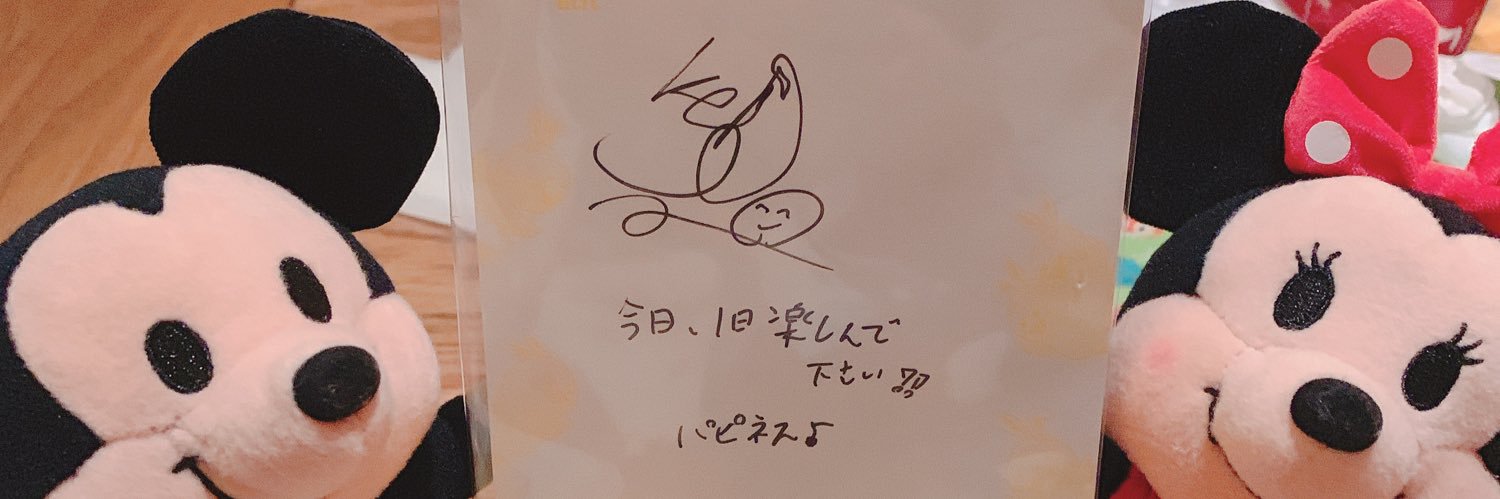 今日、1日楽しんで
下さい♫
ハピネス♪